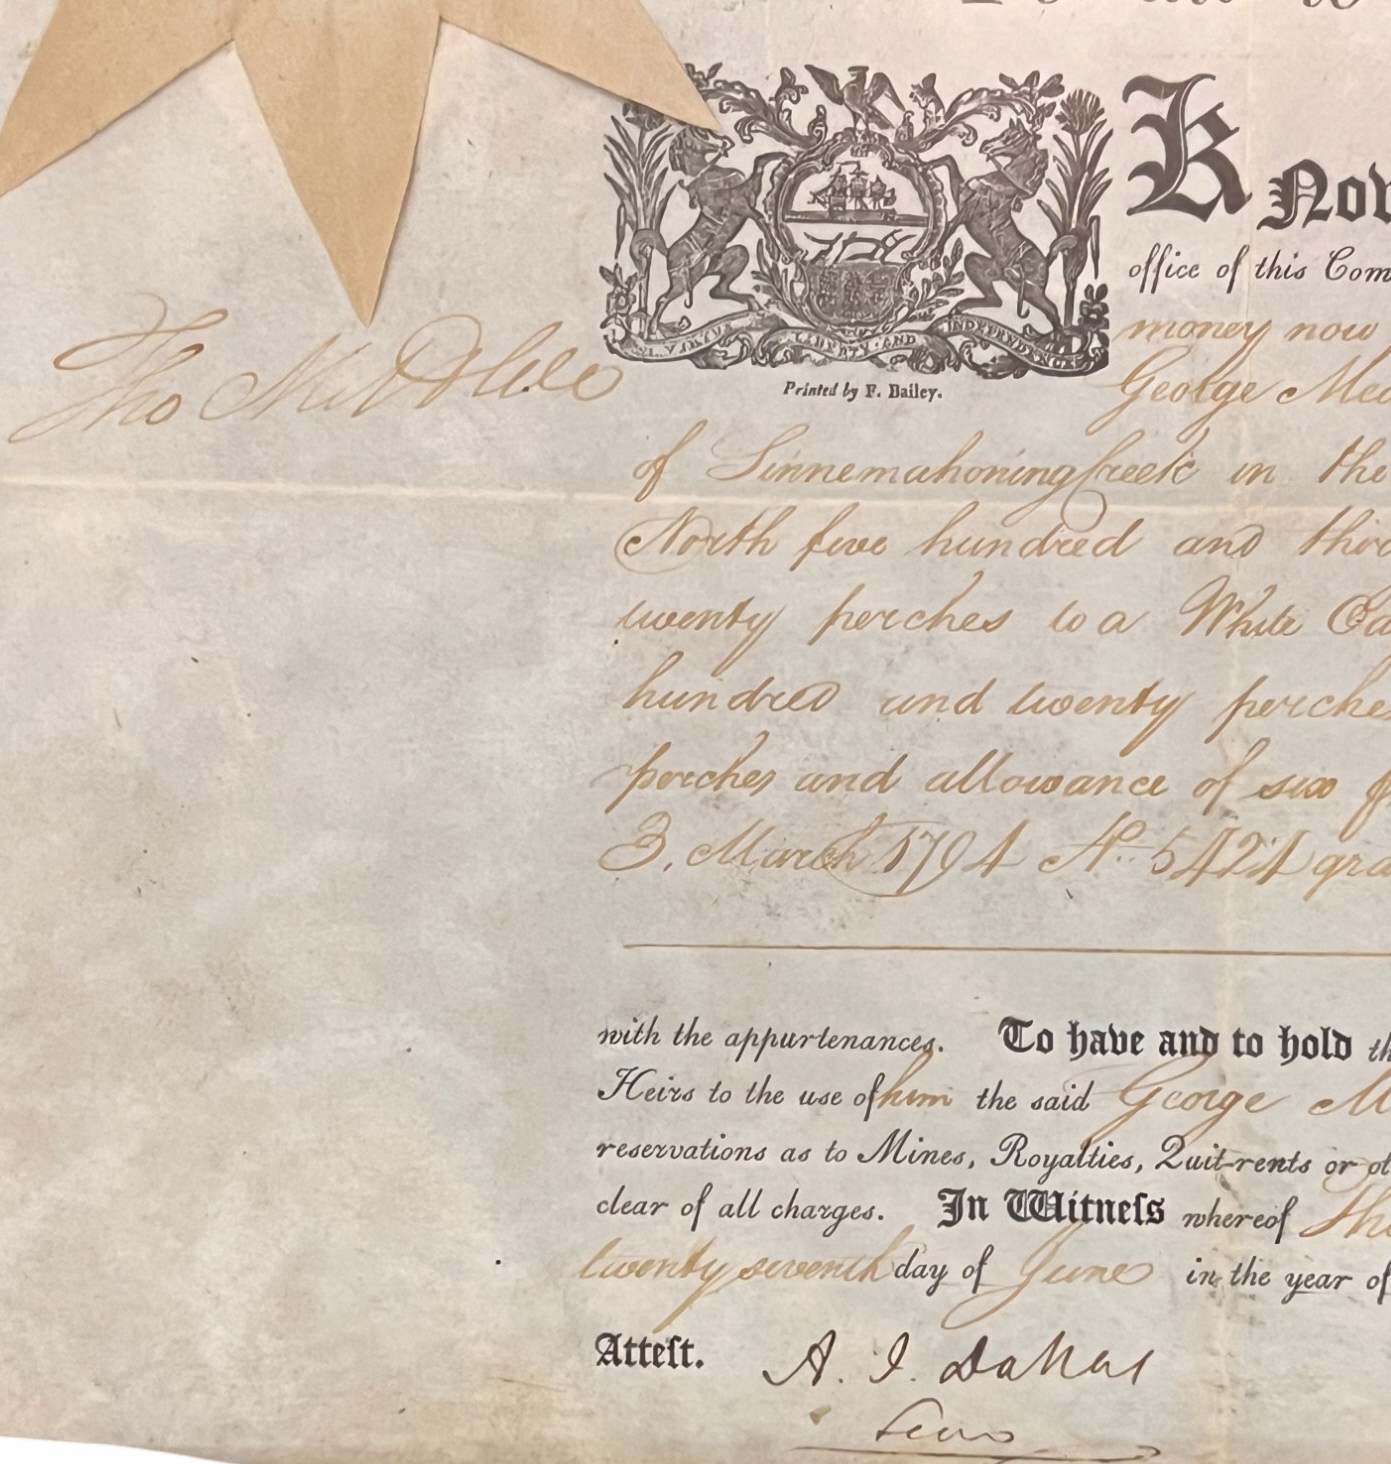 Know
office of this Com
money now
George Mea
Tho McKean
VIRTUE LIBERTY AND INDEPENDENCE
Printed by F. Bailey.
of Sinnemahoning Creek in the
North five hundred and thir
twenty perches to a White Oa
hundred and twenty perches
perches and allowance of six
3. March 1794 No. 5424 gra
with the appurtenances. To have and to hold th
Heirs to the use of him the said George M
reservations as to Mines, Royalties, Quit-rents or ot
clear of all charges. In Witneſs whereof Tho
twenty seventh day of June in the year of
Atteſt. A. J. Dallas
Secy